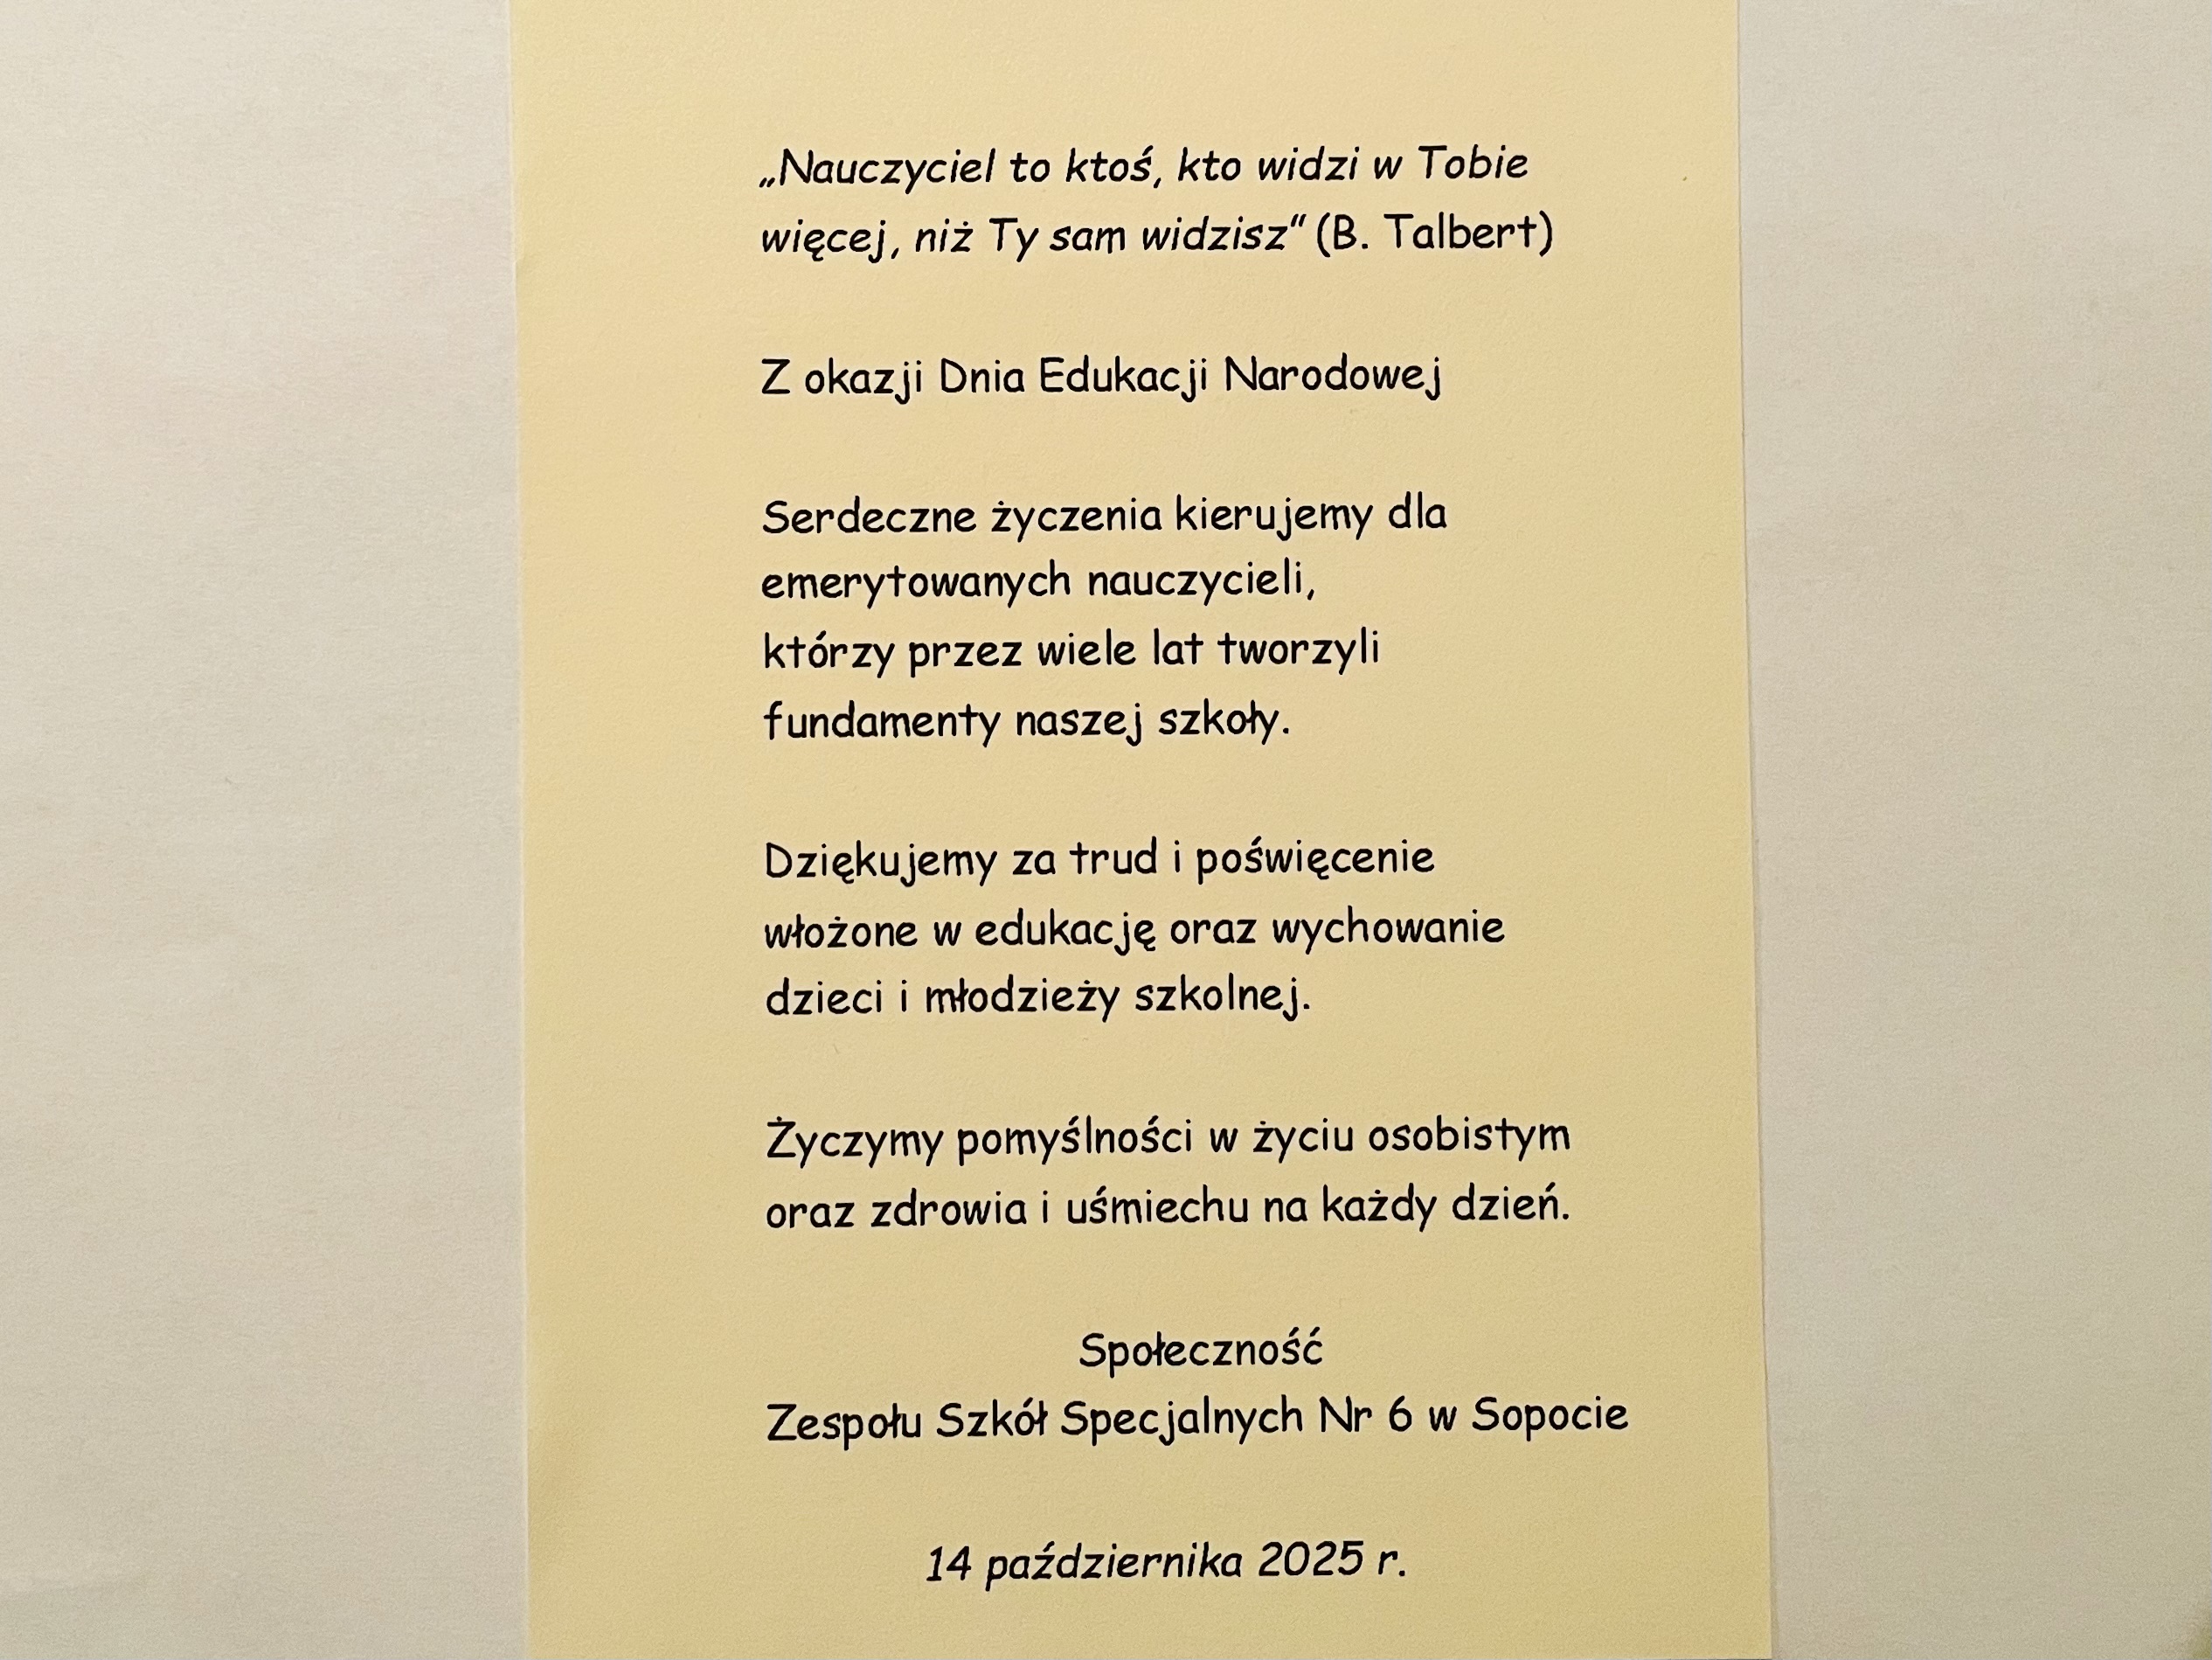 „Nauczyciel to ktoś, kto widzi w Tobie
więcej, niż Ty sam widzisz“ (B. Talbert)
Z okazji Dnia Edukacji Narodowej
Serdeczne życzenia kierujemy dla
emerytowanych nauczycieli,
którzy przez wiele lat tworzyli
fundamenty naszej szkoły.
Dziękujemy za trud i poświęcenie
włożone w edukację oraz wychowanie
dzieci i młodzieży szkolnej.
Życzymy pomyślności w życiu osobistym
oraz zdrowia i uśmiechu na każdy dzień.
Społeczność
Zespołu Szkół Specjalnych Nr 6 w Sopocie
14 października 2025 r.